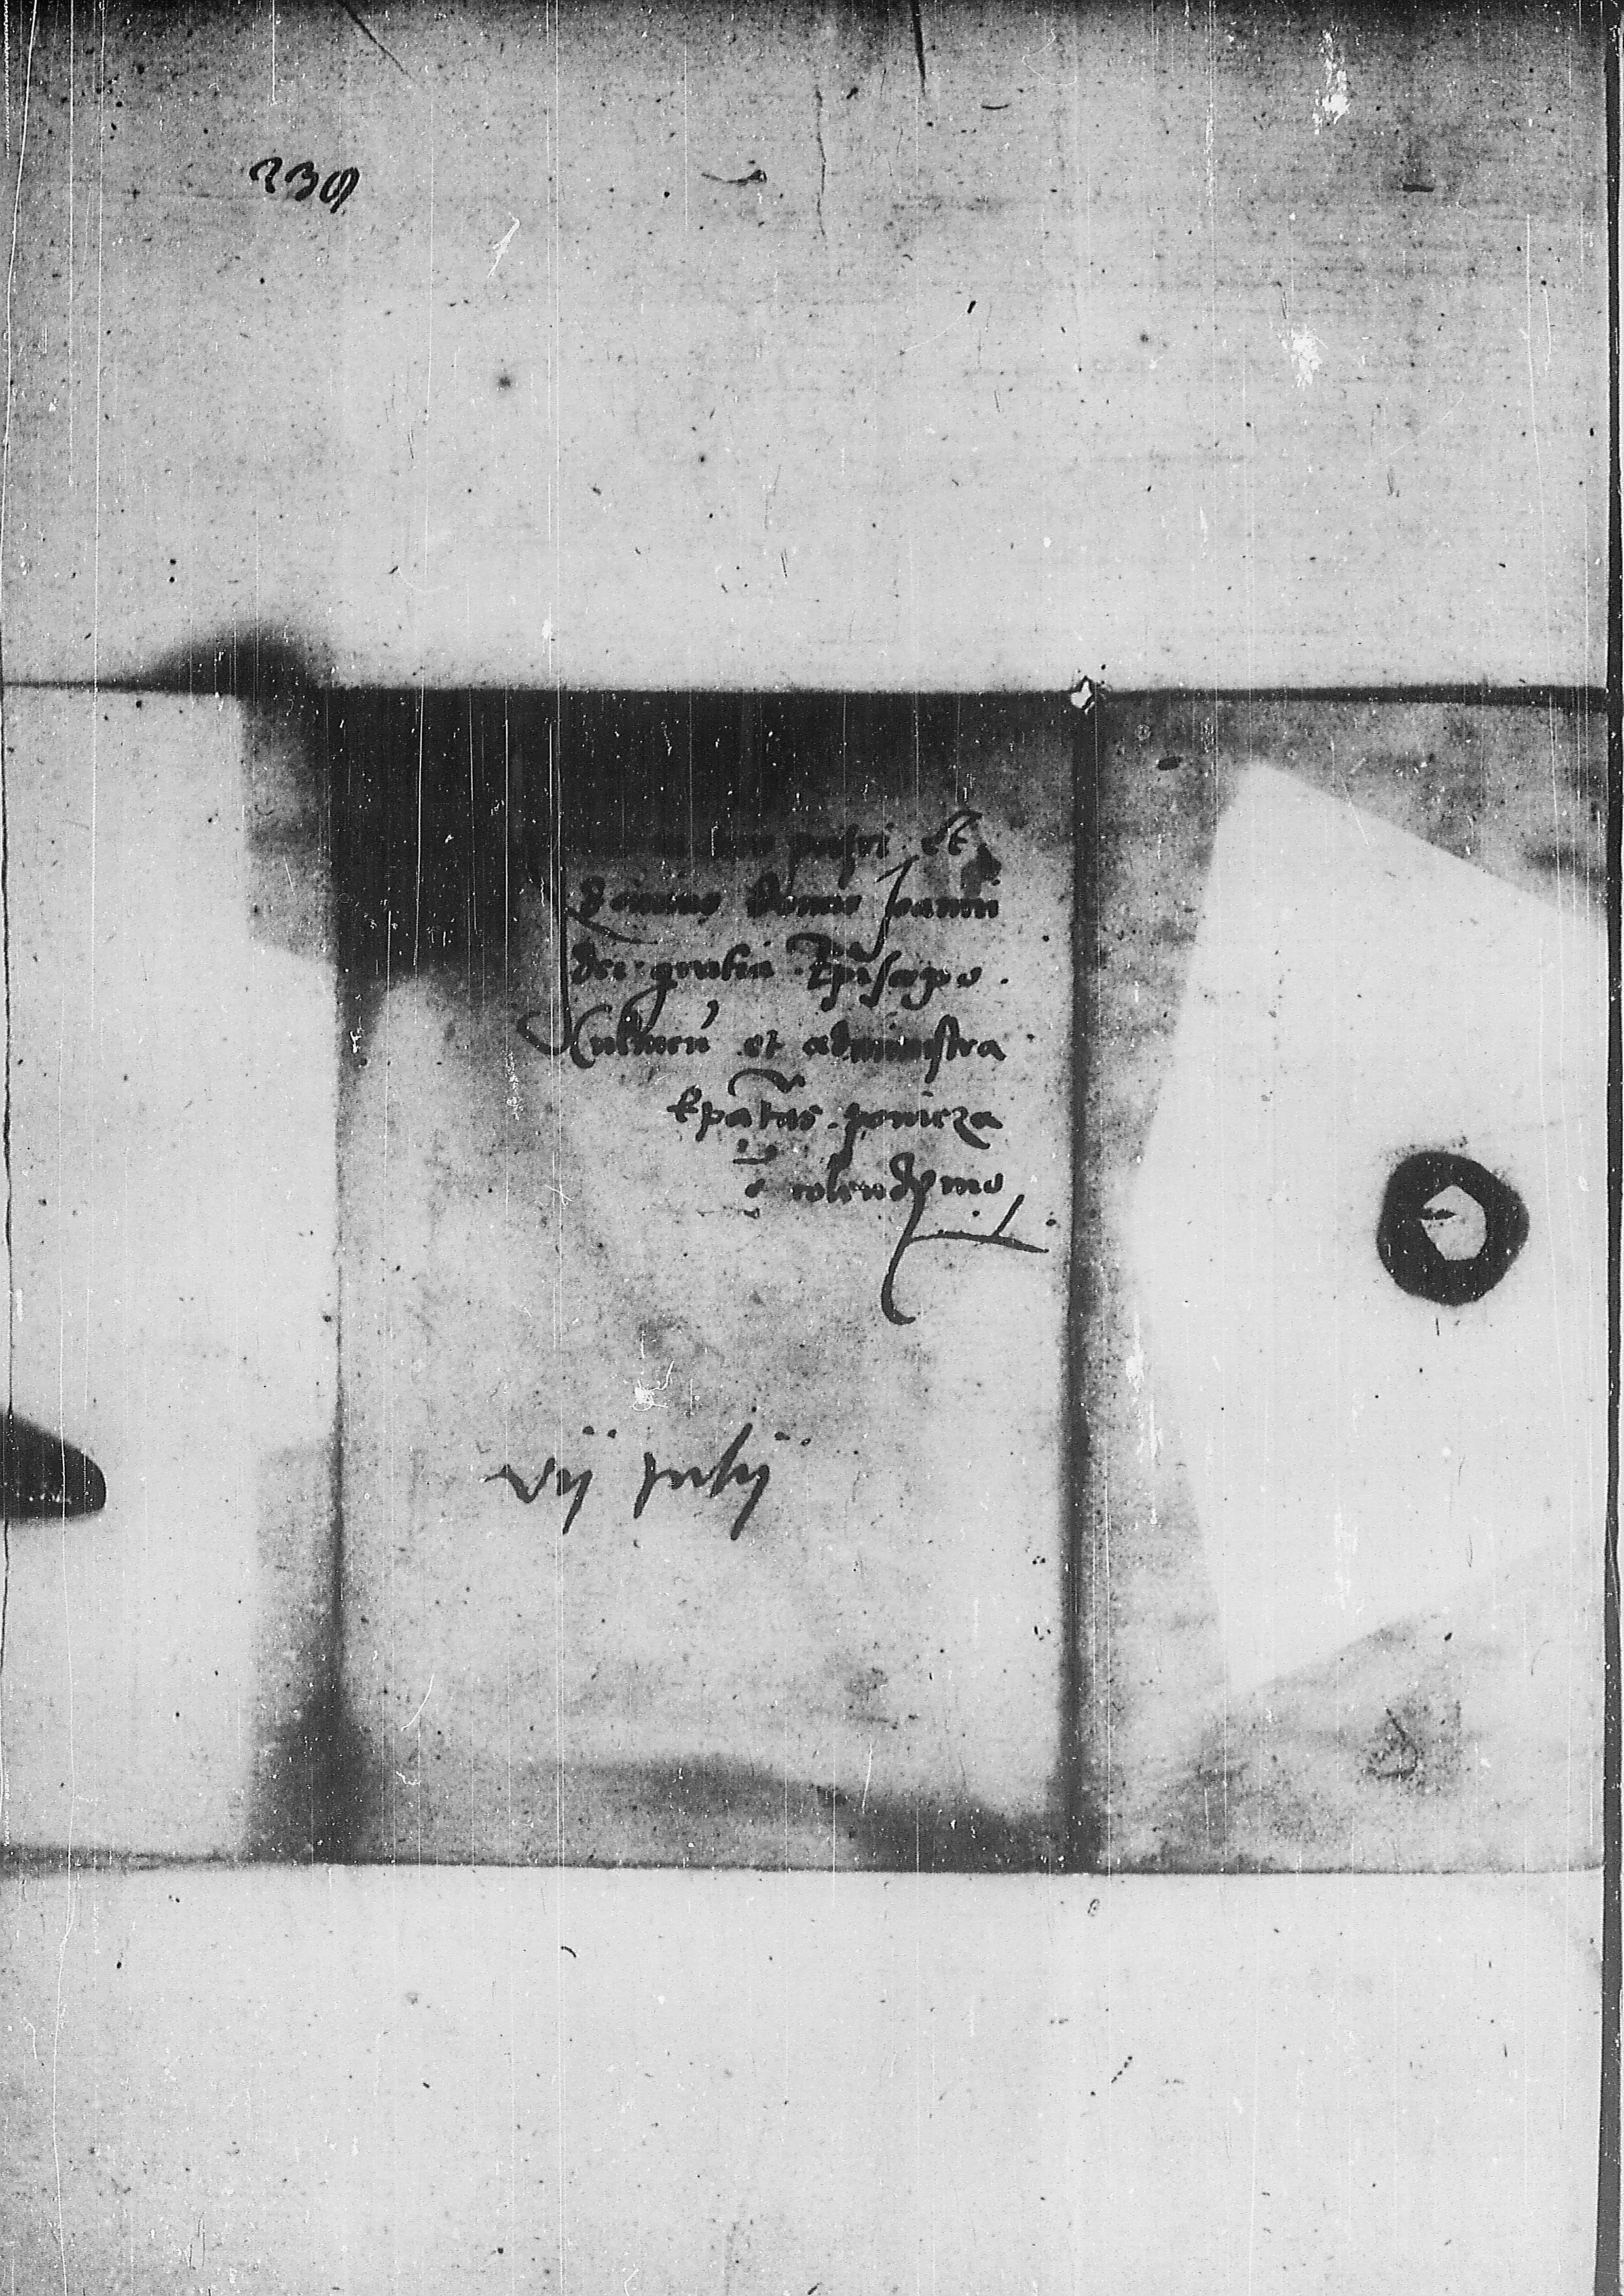 239
patri et
domino domino Joanni
dei gratia Episcopo
Culmen et administra
Epatus pomeza
colendismo
vij Julij